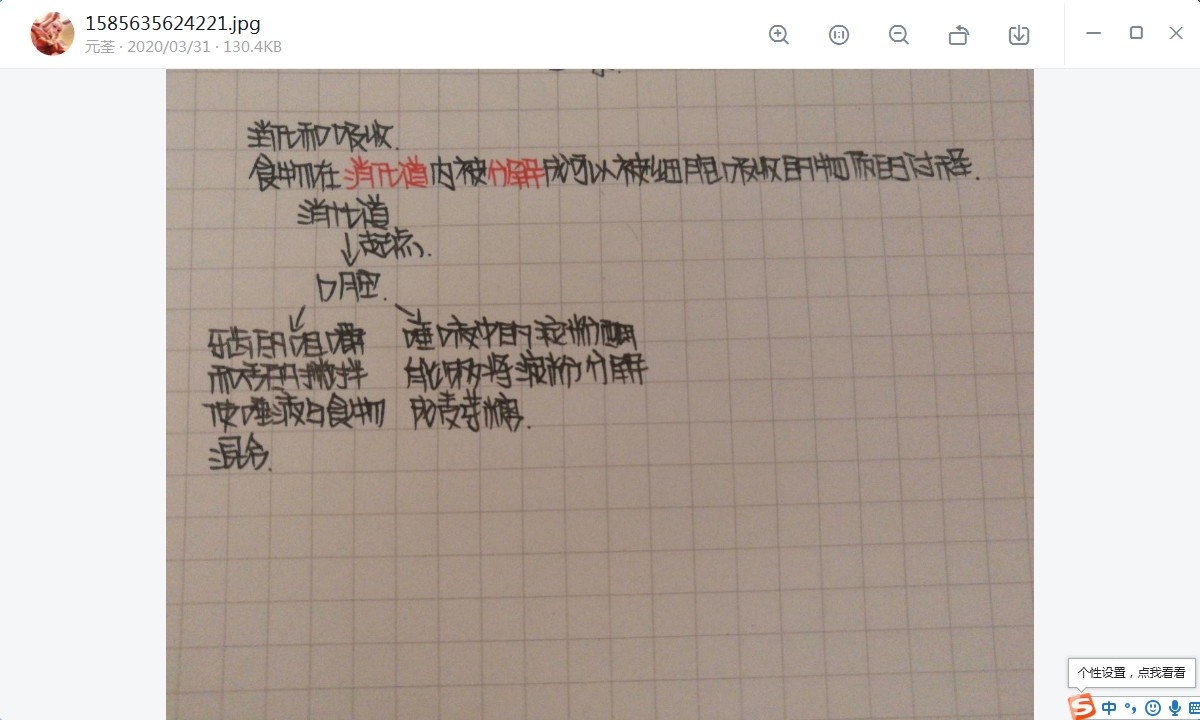 1585635624221.jpg
元荃 · 2020/03/31 · 130.4KB
消化和吸收.
食物在消化道内被分解成可以被细胞吸收的物质的过程.
消化道
↓起点.
口腔.
牙齿的咀嚼 唾液中的淀粉酶
和舌的搅拌 能够将淀粉分解
使唾液与食物 成麦芽糖.
混合.
个性设置，点我看看
中